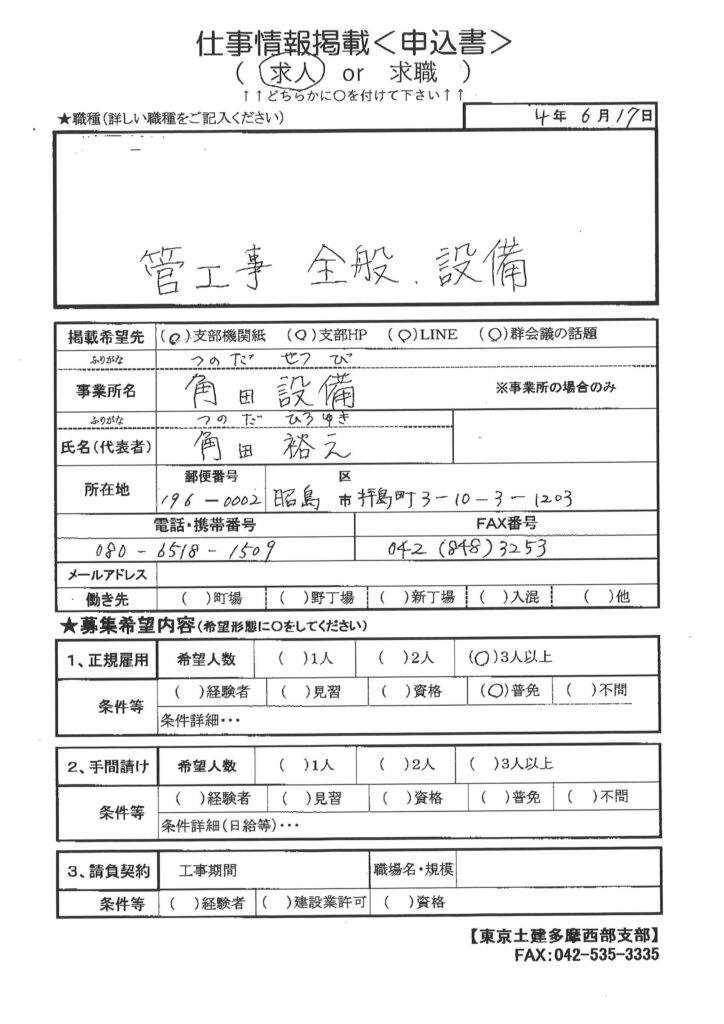 仕事情報掲載＜申込書＞
( 求人 or 求職 )
↑↑どちらかに〇を付けて下さい↑↑
★職種(詳しい職種をご記入ください) 4年 6月17日
管工事 全般、設備
掲載希望先 (〇)支部機関紙 (〇)支部HP (〇)LINE (〇)群会議の話題
ふりがな つのだ せつび
事業所名 角田設備 ※事業所の場合のみ
ふりがな つのだ ひろゆき
氏名(代表者) 角田裕之
所在地 郵便番号 区
196-0002 昭島 市 拝島町3-10-3-1203
電話・携帯番号 FAX番号
080-6518-1509 042(848)3253
メールアドレス
働き先 ( )町場 ( )野丁場 ( )新丁場 ( )入混 ( )他
★募集希望内容(希望形態に〇をしてください)
1、正規雇用 希望人数 ( )1人 ( )2人 (〇)3人以上
条件等 ( )経験者 ( )見習 ( )資格 (〇)普免 ( )不問
条件詳細・・・
2、手間請け 希望人数 ( )1人 ( )2人 ( )3人以上
条件等 ( )経験者 ( )見習 ( )資格 ( )普免 ( )不問
条件詳細(日給等)・・・
3、請負契約 工事期間 職場名・規模
条件等 ( )経験者 ( )建設業許可 ( )資格
【東京土建多摩西部支部】
FAX:042-535-3335